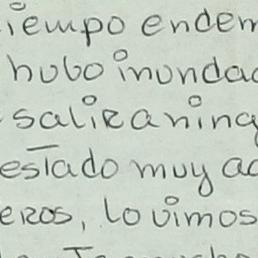 iempo endem
hubo inundac
salir a ning
estado muy ac
eros, lo vimos